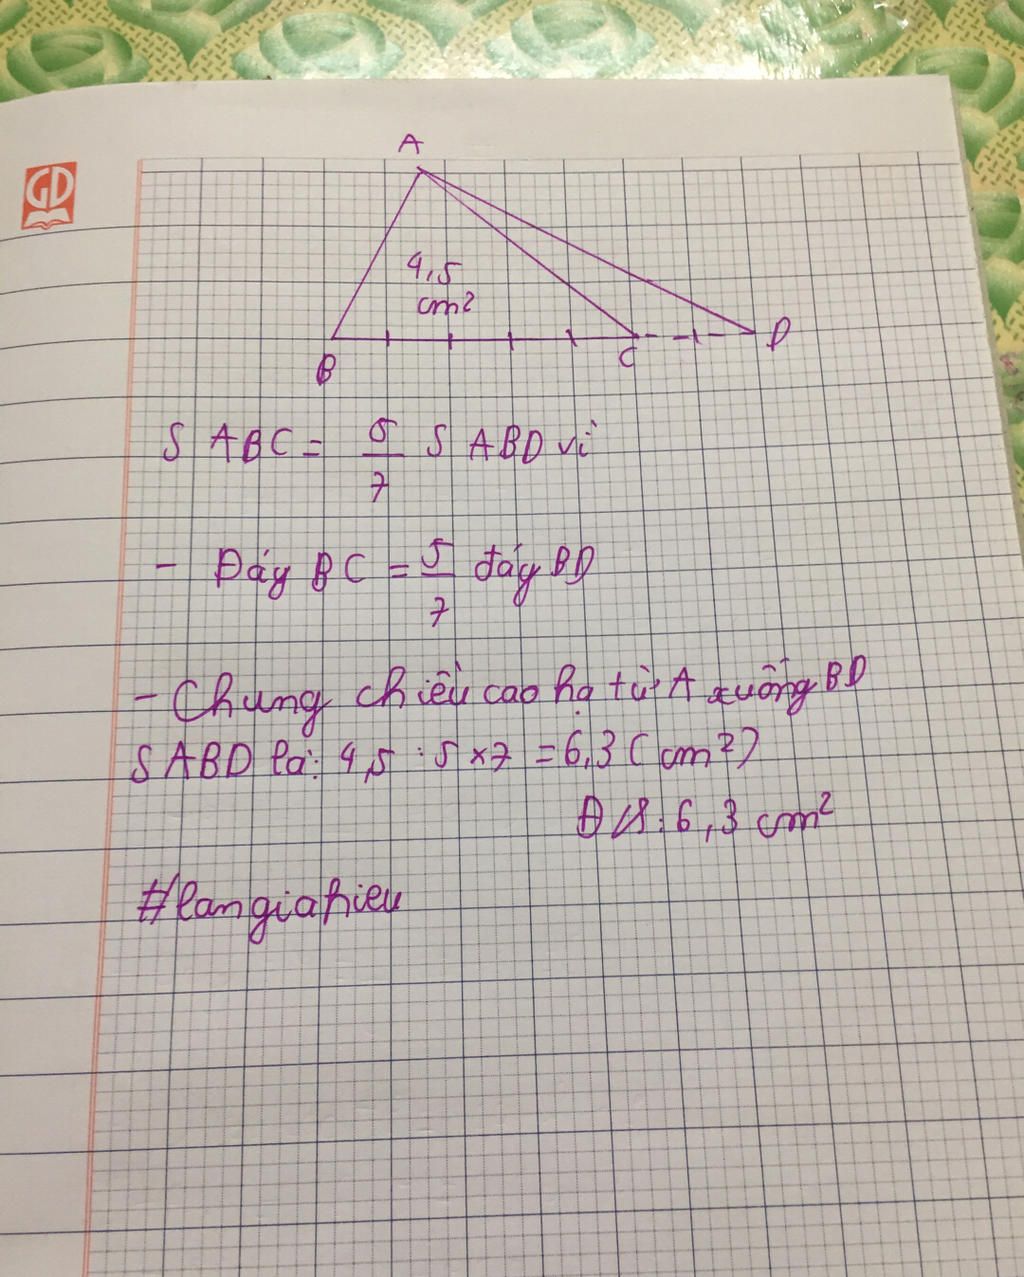 GD
A
4,5
cm²
B
C
D
S ABC = 5/7 S ABD vì
- Đáy BC = 5/7 đáy BD
- Chung chiều cao hạ từ A xuống BD
S ABD là: 4,5 : 5 x 7 = 6,3 (cm²)
Đ/S: 6,3 cm²
#langiahieu